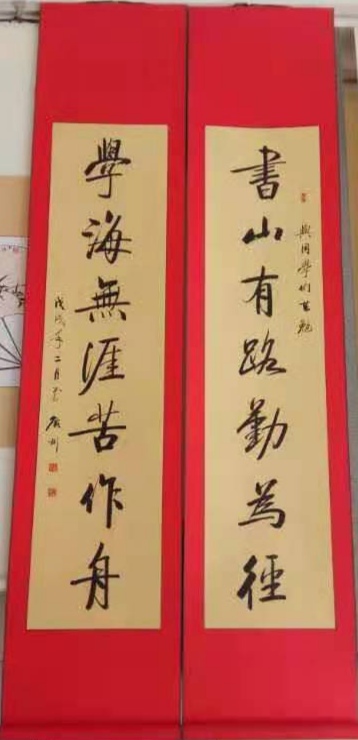 書山有路勤為徑
與同學們共勉
學海無涯苦作舟
戊戌年二月於廣州